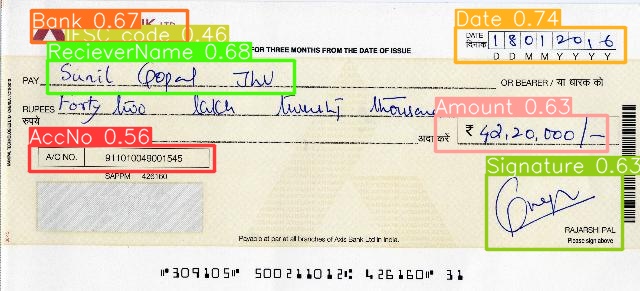 Bank 0.67 NK LTD
IFSC code 0.46
Date 0.74
RecieverName 0.68 FOR THREE MONTHS FROM THE DATE OF ISSUE
DATE दिनांक 18012016
D D M M Y Y Y Y
PAY Sunil Gopal OR BEARER / या धारक को
RUPEES रुपये Forty two lakh twenty thousand
Amount 0.63
अदा करें ₹ 42,20,000/-
AccNo 0.56
A/C NO. 911010049001545
SAPPM 426160
Signature 0.63
RAJARSHI PAL
Please sign above
Payable at par at all branches of Axis Bank Ltd in India.
⑈309105⑈ 500211012⑆ 426160⑈ 31